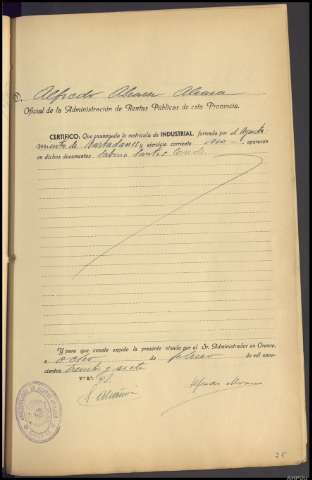 D. Alfredo Alvarez
Oficial de la Administración de Rentas Públicas de esta Provincia.
CERTIFICO: Que examinada la matrícula de INDUSTRIAL, formada por el Ayunta-
miento de y ejercicio corriente no aparecen
en dichos documentos Santos Conde
Y para que conste expido la presente visada por el Sr. Administrador en Orense,
a ocho de febrero de mil nove-
cientos treinta y siete
V.º B.º
Alfredo Alvarez
25